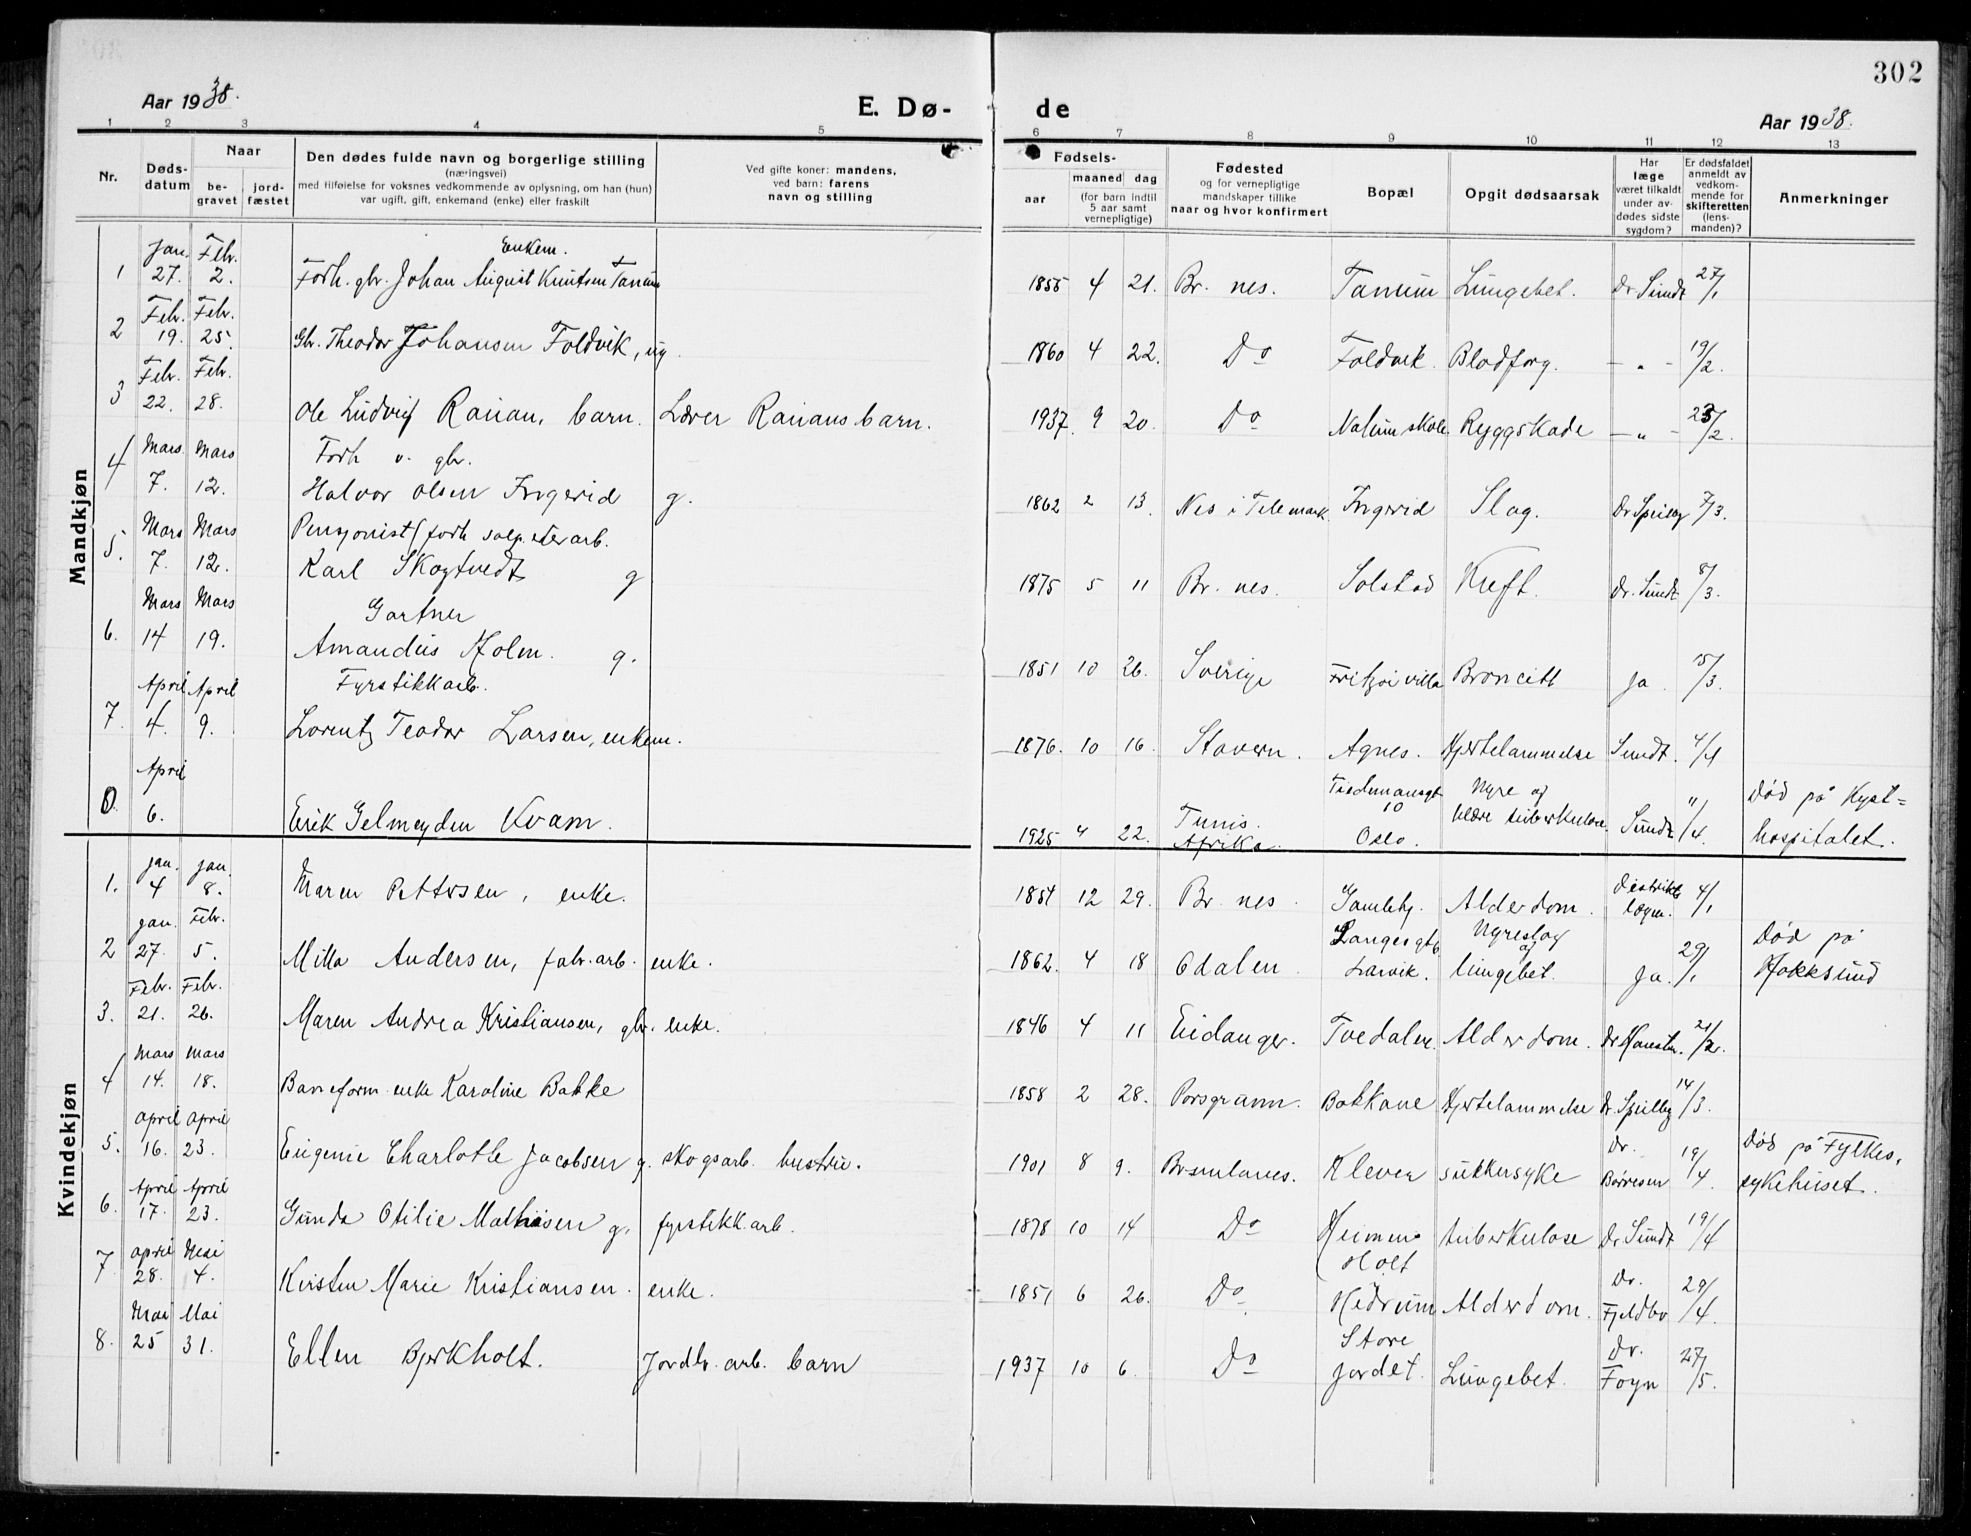 302
Aar 1938.
E. Dø-
de
Aar 1938.
1 2 3 4 5 6 7 8 9 10 11 12 13
Nr.
Døds-
datum
Naar
be-
gravet
jord-
fæstet
Den dødes fulde navn og borgerlige stilling
(næringsvei)
med tilføielse for voksnes vedkommende av oplysning, om han (hun)
var ugift, gift, enkemand (enke) eller fraskilt
Ved gifte koner: mandens,
ved barn: farens
navn og stilling
Fødsels-
aar
maaned dag
(for barn indtil
5 aar samt
vernepligtige)
Fødested
og for vernepligtige
mandskaper tillike
naar og hvor konfirmert
Bopæl
Opgit dødsaarsak
Har
læge
været tilkaldt
under av-
dødes sidste
sygdom?
Er dødsfaldet
anmeldt av
vedkom-
mende for
skifteretten
(lens-
manden)?
Anmerkninger
Mandkjøn
Jan. Febr. Enkem.
1 27. 2. Forh. gbr. Johan August Knutsen Tanum 1855 4 21. Br. nes. Tanum Lungebet. Dr Sundt 27/1
Febr. Febr.
2 19. 25. Gbr. Theodor Johansen Foldvik, ug. 1860 4 22. Do Foldvik. Blodforg. - " - 19/2.
Febr. Febr.
3 22. 28. Ole Ludvig Rauan, barn. Lærer Rauans barn. 1937. 9 20. Do Nalum skole. Ryggskade - " - 23/2.
Mars. Mars Forh v. gbr.
4 7. 12. Halvor Olsen Ingerid g. 1862 2 13. Nes i Telemark Ingerid Slag. Dr Speilby 7/3.
Mars Mars Pensjonist (forh salpeterarb.
5. 7. 12. Karl Skogtvedt g 1875 5 11 Br. nes. Solstad Kreft. Dr. Sundt 8/3.
Mars Mars Gartner
6. 14 19. Amandus Holm. g. 1851 10 26. Sverige Fritjoi villa Broncitt ja. 15/3.
April April Fyrstikkarb.
7. 4. 9. Lorentz Teodor Larsen, enkem. 1876. 10 16. Stavern. Agnes. Hjertelammelse Sundt. 4/4
April Tiedemansgt Nyre og Død på Kyst=
0. 6. Erik Gelmeyden Kvam. 1925 4 22. Tunis. Afrika. 10 Oslo. blære tuberkulose. Sundt 11/4. hospitalet.
Kvindekjøn
jan. jan. Distrikts
1. 4 8. Maren Pettersen, enke. 1854 12 29. Br. nes. Gamlehj. Alderdom. lægen. 4/1
jan. Febr. Langesgt 6 Nyreslag og Død på
2 27. 5. Milla Andersen, fabr. arb. enke. 1862. 4 18 Odalen. Larvik. lungebet. Ja. 29/1 Hokksund
Febr. Febr.
3. 21. 26. Maren Andrea Kristiansen, gbr. enke. 1846 4 11 Eidanger. Tvedalen. Alderdom. 21/2.
Mars Mars
4 14. 18. Baneform. enke Karoline Bakke 1858 2 28. Porsgrunn. Bakkane Hjertelammelse Dr. Speilby 14/3.
April April Dr. Død på Fylkes,
5. 16. 23. Eugenie Charlotte Jacobsen g. skogsarb. hustru. 1901 8 9. Brunlanes. Klever sukkersyke Børresen 19/4. sykehuset.
April April
6. 17. 23. Gunda Otilie Mathisen g. fyrstikk.arb. 1878 10 14 Do Heimen tuberkulose Dr Sundt 19/4
April Mai Holt Dr.
7 28. 4. Kirsten Marie Kristiansen. enke. 1851 6 26. Do Hedrum Alderdom. Fjeldbo 29/4.
Mai Mai Store Dr.
8. 25 31. Ellen Bjerkholt. Jordbr. arb. barn 1937 10 6. Do jordet. Lungebet. Foyn 27/5.